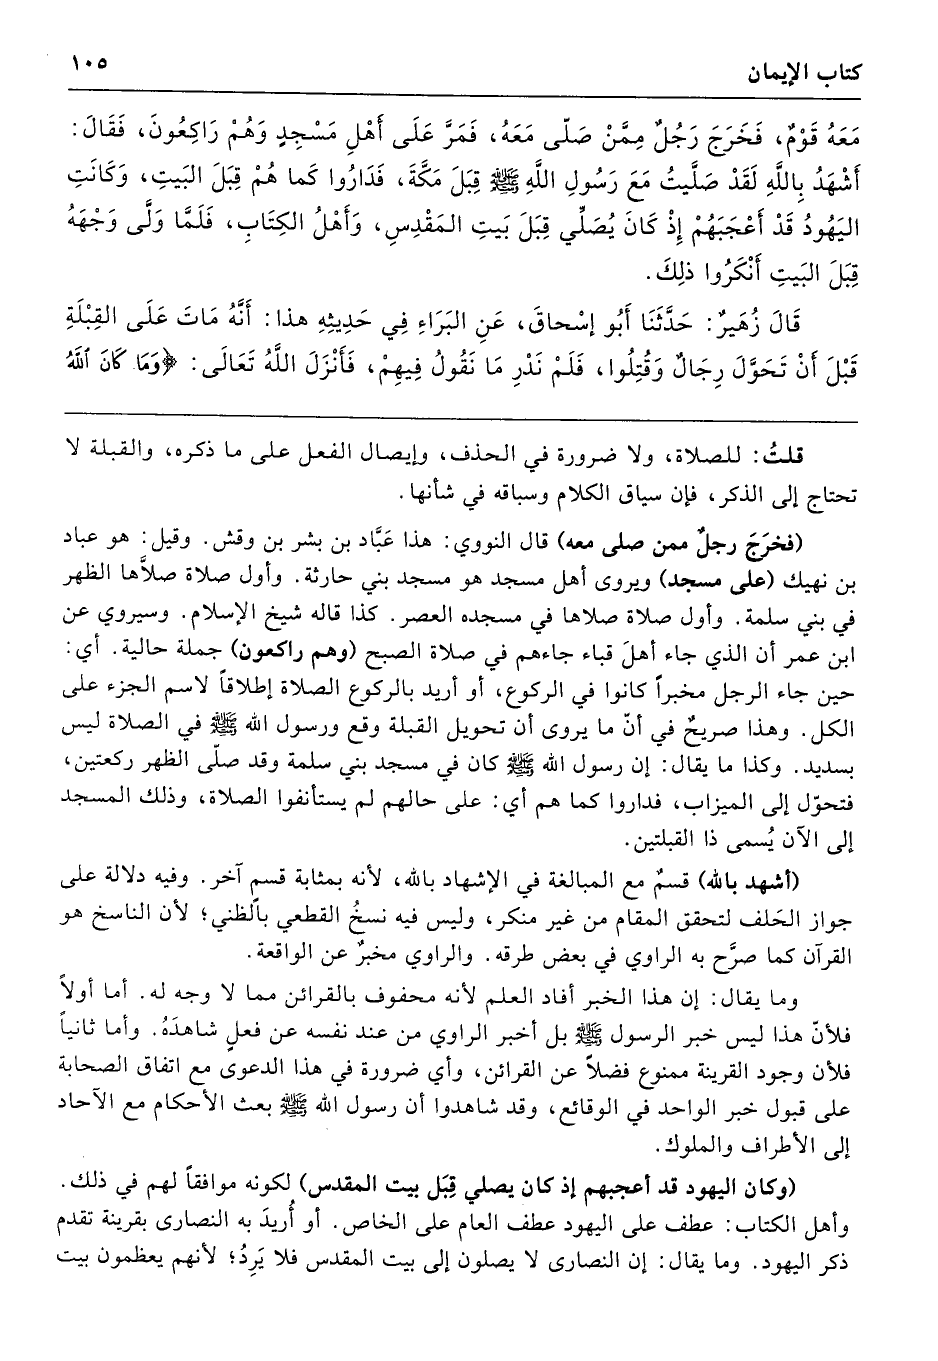 كتاب الإيمان ١٠٥
مَعَهُ قَوْمٌ، فَخَرَجَ رَجُلٌ مِمَّنْ صَلَّى مَعَهُ، فَمَرَّ عَلَى أَهْلِ مَسْجِدٍ وَهُمْ رَاكِعُونَ، فَقَالَ:
أَشْهَدُ بِاللَّهِ لَقَدْ صَلَّيتُ مَعَ رَسُولِ اللَّهِ ﷺ قِبَلَ مَكَّةَ، فَدَارُوا كَما هُمْ قِبَلَ البَيتِ، وَكَانَتِ
اليَهُودُ قَدْ أَعْجَبَهُمْ إِذْ كَانَ يُصَلِّي قِبَلَ بَيتِ المَقْدِسِ، وَأَهْلُ الكِتَابِ، فَلَمَّا وَلَّى وَجْهَهُ
قِبَلَ البَيتِ أَنْكَرُوا ذلِكَ.
قَالَ زُهَيرٌ: حَدَّثَنَا أَبُو إِسْحاقَ، عَنِ البَرَاءِ فِي حَدِيثِهِ هذا: أَنَّهُ مَاتَ عَلَى القِبْلَةِ
قَبْلَ أَنْ تَحَوَّلَ رِجالٌ وَقُتِلُوا، فَلَمْ نَدْرِ مَا نَقُولُ فِيهِمْ، فَأَنْزَلَ اللَّهُ تَعَالَى: ﴿وَمَا كَانَ ٱللَّهُ
قلتُ: للصلاة، ولا ضرورة في الحذف، وإيصال الفعل على ما ذكره، والقبلة لا
تحتاج إلى الذكر، فإن سياق الكلام وسباقه في شأنها.
(فخرَجَ رجلٌ ممن صلى معه) قال النووي: هذا عَبَّاد بن بشر بن وقش. وقيل: هو عباد
بن نهيك (على مسجد) ويروى أهل مسجد هو مسجد بني حارثة. وأول صلاة صلاَّها الظهر
في بني سلمة. وأول صلاة صلاها في مسجده العصر. كذا قاله شيخ الإسلام. وسيروي عن
ابن عمر أن الذي جاء أهلَ قباء جاءهم في صلاة الصبح (وهم راكعون) جملة حالية. أي:
حين جاء الرجل مخبراً كانوا في الركوع، أو أريد بالركوع الصلاة إطلاقاً لاسم الجزء على
الكل. وهذا صريحٌ في أنّ ما يروى أن تحويل القبلة وقع ورسول الله ﷺ في الصلاة ليس
بسديد. وكذا ما يقال: إن رسول الله ﷺ كان في مسجد بني سلمة وقد صلّى الظهر ركعتين،
فتحوّل إلى الميزاب، فداروا كما هم أي: على حالهم لم يستأنفوا الصلاة، وذلك المسجد
إلى الآن يُسمى ذا القبلتين.
(أشهد بالله) قسمٌ مع المبالغة في الإشهاد بالله، لأنه بمثابة قسمٍ آخر. وفيه دلالة على
جواز الحَلف لتحقق المقام من غير منكر، وليس فيه نسخُ القطعي بالظني؛ لأن الناسخ هو
القرآن كما صرَّح به الراوي في بعض طرقه. والراوي مخبرٌ عن الواقعة.
وما يقال: إن هذا الخبر أفاد العلم لأنه محفوف بالقرائن مما لا وجه له. أما أولاً
فلأنّ هذا ليس خبر الرسول ﷺ بل أخبر الراوي من عند نفسه عن فعلٍ شاهدَهُ. وأما ثانياً
فلأن وجود القرينة ممنوع فضلاً عن القرائن، وأي ضرورة في هذا الدعوى مع اتفاق الصحابة
على قبول خبر الواحد في الوقائع، وقد شاهدوا أن رسول الله ﷺ بعث الأحكام مع الآحاد
إلى الأطراف والملوك.
(وكان اليهود قد أعجبهم إذ كان يصلي قِبَل بيت المقدس) لكونه موافقاً لهم في ذلك.
وأهل الكتاب: عطف على اليهود عطف العام على الخاص. أو أُريدَ به النصارى بقرينة تقدم
ذكر اليهود. وما يقال: إن النصارى لا يصلون إلى بيت المقدس فلا يَرِدُ؛ لأنهم يعظمون بيت